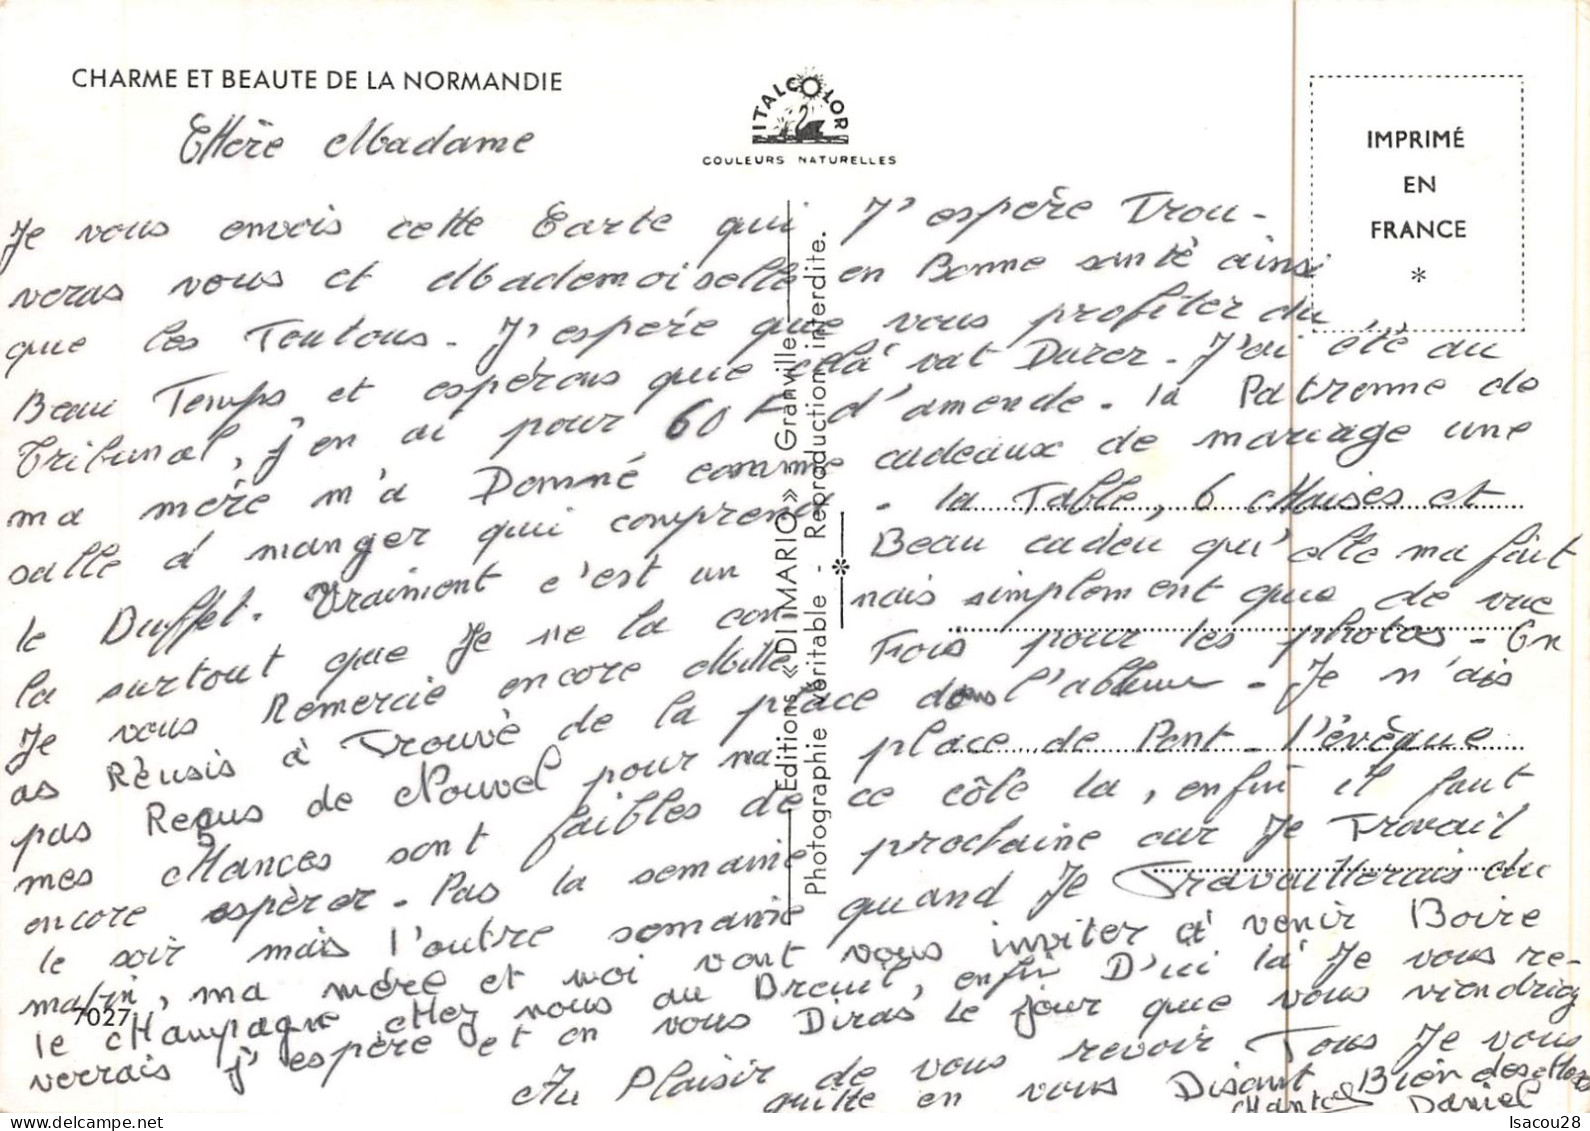 CHARME ET BEAUTE DE LA NORMANDIE
ITALCOLOR
COULEURS NATURELLES
IMPRIMÉ
EN
FRANCE
*
CHère Madame
Je vous envois cette Carte qui J'espère Trou-
veras vous et Mademoiselle en Bonne santé ainsi
que les Toutous. J'espère que vous profiter du
Beau Temps et espérons que celà vat Durer. J'ai été au
Tribunal, j'en ai pour 60 F d'amende. la Patronne de
ma mère m'a Donné comme cadeaux de mariage une
salle à manger qui comprend - la Table, 6 CHaises et
le Buffet. Vraiment c'est un Beau cadeu qu'elle ma fait
la surtout que Je ne la connais simplement que de vue
Je vous Remercie encore Mille Fois pour les photos. On
as Réusis à Trouvè de la place dans l'album. Je n'ais
pas Reçus de Nouvel pour ma place de Pont-l'évêque
mes CHances sont faibles de ce côte la, enfin il faut
encore espèrer. Pas la semaine prochaine car Je Travail
le soir mais l'autre semaine quand Je Travaillerais du
matin, ma mére et moi vont vous inviter à venir Boire
le CHampagne CHez nous au Breuil, enfin D'ici là Je vous re-
verrais j'espère et en vous Diras Le jour que vous viendriez
Au Plaisir de vous revoir Tous Je vous
quitte en vous Disant Bien des CHoses
CHantal Daniel
7027
Editions «DI MARIO» Granville
Photographie véritable - Reproduction interdite.
*
Isacou28